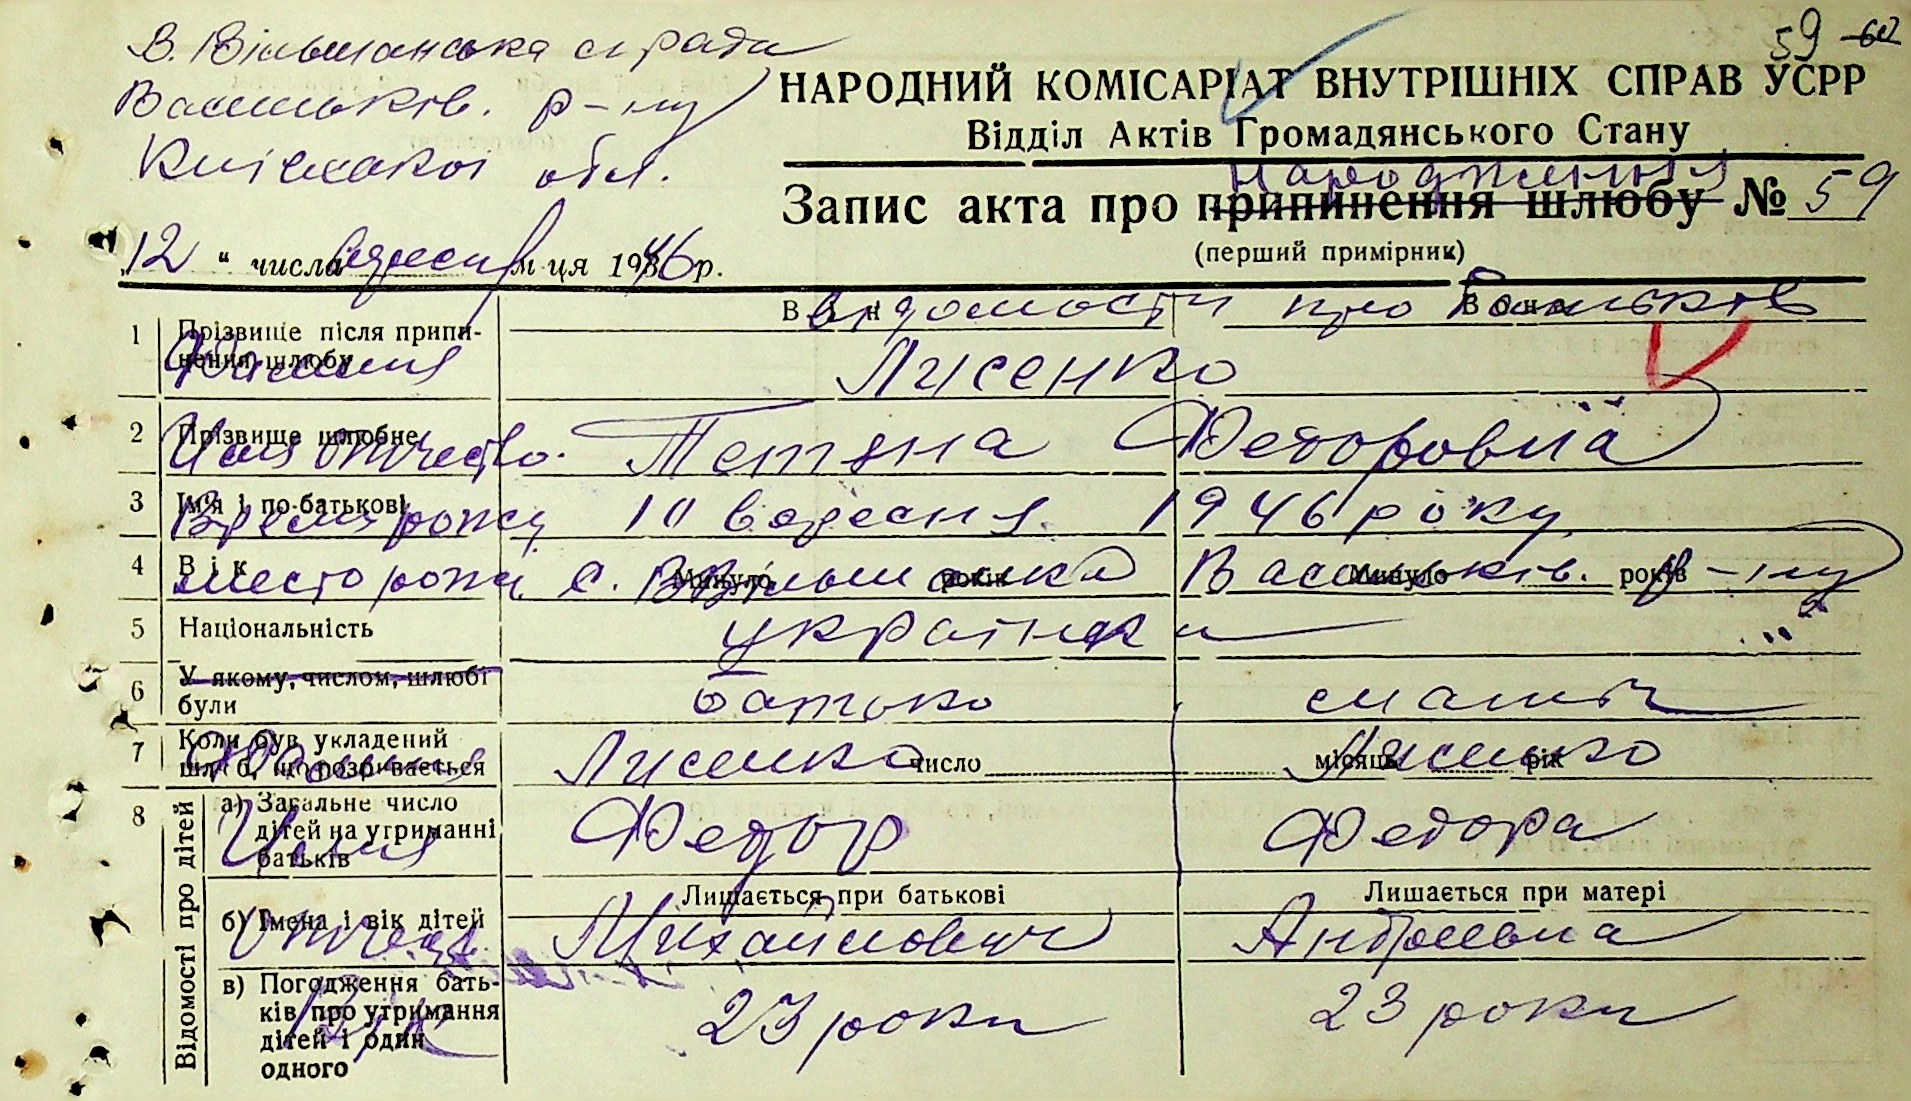 59 60
В. Вільшанська с рада
Васильків. р-ну
Київської обл.
НАРОДНИЙ КОМІСАРІАТ ВНУТРІШНІХ СПРАВ УСРР
Відділ Актів Громадянського Стану
народження
Запис акта про припинення шлюбу № 59
(перший примірник)
„12 “ числа вересня м-ця 1946 р.
Він Вона
Відомості про батьків
1 Прізвище після припи-
нення шлюбу
Фамилия Лисенко
2 Прізвище шлюбне
Имя отчество. Тетяна Федоровна
3 Ім'я і по-батькові
Время рожд 10 вересня 1946 року
4 Вік Минуло років Минуло років
место рожд с. В Вільшанка Васильків. р-ну
5 Національність українка
6 У якому, числом, шлюбі
були
батько мати
7 Коли був укладений
шлюб, що розривається число місяць рік
Фамилия Лисенко Лисенко
Відомості про дітей
8 а) Загальне число
дітей на утриманні
батьків
Имя Федор Федора
Лишається при батькові Лишається при матері
б) Імена і вік дітей
Отчест Михайлович Андреевна
в) Погодження бать-
ків про утримання
дітей і один
одного
Вік 23 роки 23 роки